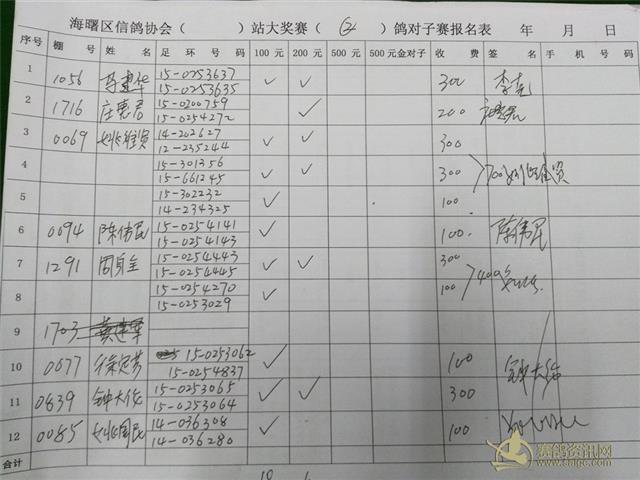 海曙区信鸽协会（ ）站大奖赛（ ② ）鸽对子赛报名表 年 月 日
序号 棚号 姓名 足环号码 100元 200元 500元 500元金对子 收费 签名 手机号码
1 1056 马建华 15-0253637 ✓ ✓ 300
15-0253635
2 1716 庄惠君 15-0200759 ✓ 200
15-0254272
3 0069 姚维贤 14-202627 ✓ ✓ 300
12-235244
4 15-301356 ✓ ✓ 300
15-661245
5 15-302232 ✓ 100
14-234325
6 0094 陈伟民 15-0254141 ✓ 100 陈伟民
15-0254143
7 1291 15-0254443 ✓ ✓ 300
15-0254445
8 15-0254270 ✓ 100
15-0253029
9 1703
10 0077 15-0253062 ✓ 100 钟大伟
15-0254837
11 0839 钟大伟 15-0253065 ✓ ✓ 300
15-0253064
12 0085 姚国民 14-036308 ✓ 100
14-036280
合计
赛鸽资讯网
www.saige.com